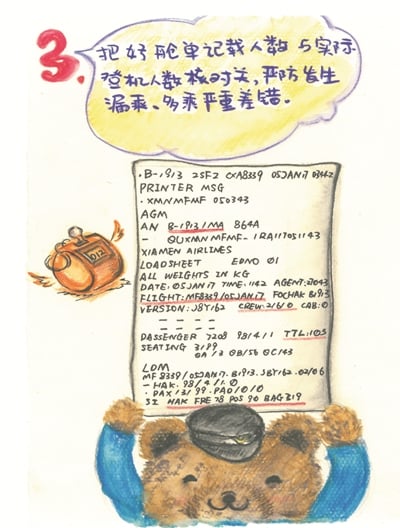 3.
把好舱单记载人数与实际
登机人数核对关，严防发生
漏乘、多乘严重差错。
012
·B-1913 25F2 CXA8339 05JAN17 0342
PRINTER MSG
·XMNMFMF 050343
AGM
AN B-1913/MA 864A
- QUXMNMFMF-1RA117051143
XIAMEN AIRLINES
LOADSHEET EDNO 01
ALL WEIGHTS IN KG
DATE:05JAN17 TIME:1142 AGENT:27043
FLIGHT:MF8339/05JAN17 FOCHAK B1913
VERSION:J8Y162 CREW:2/6/0 CAB:0
— — — —
— — — —
PASSENGER 7208 98/4/1 TTL:103
SEATING 3/99
OA/3 OB/56 OC/43
LDM
MF8339/05JAN17.B1913.J8Y162.02/06
-HAK.98/4/1.0
·PAX/3/99.PAD/0/0
SI HAK FRE 78 POS 90 BAG 319